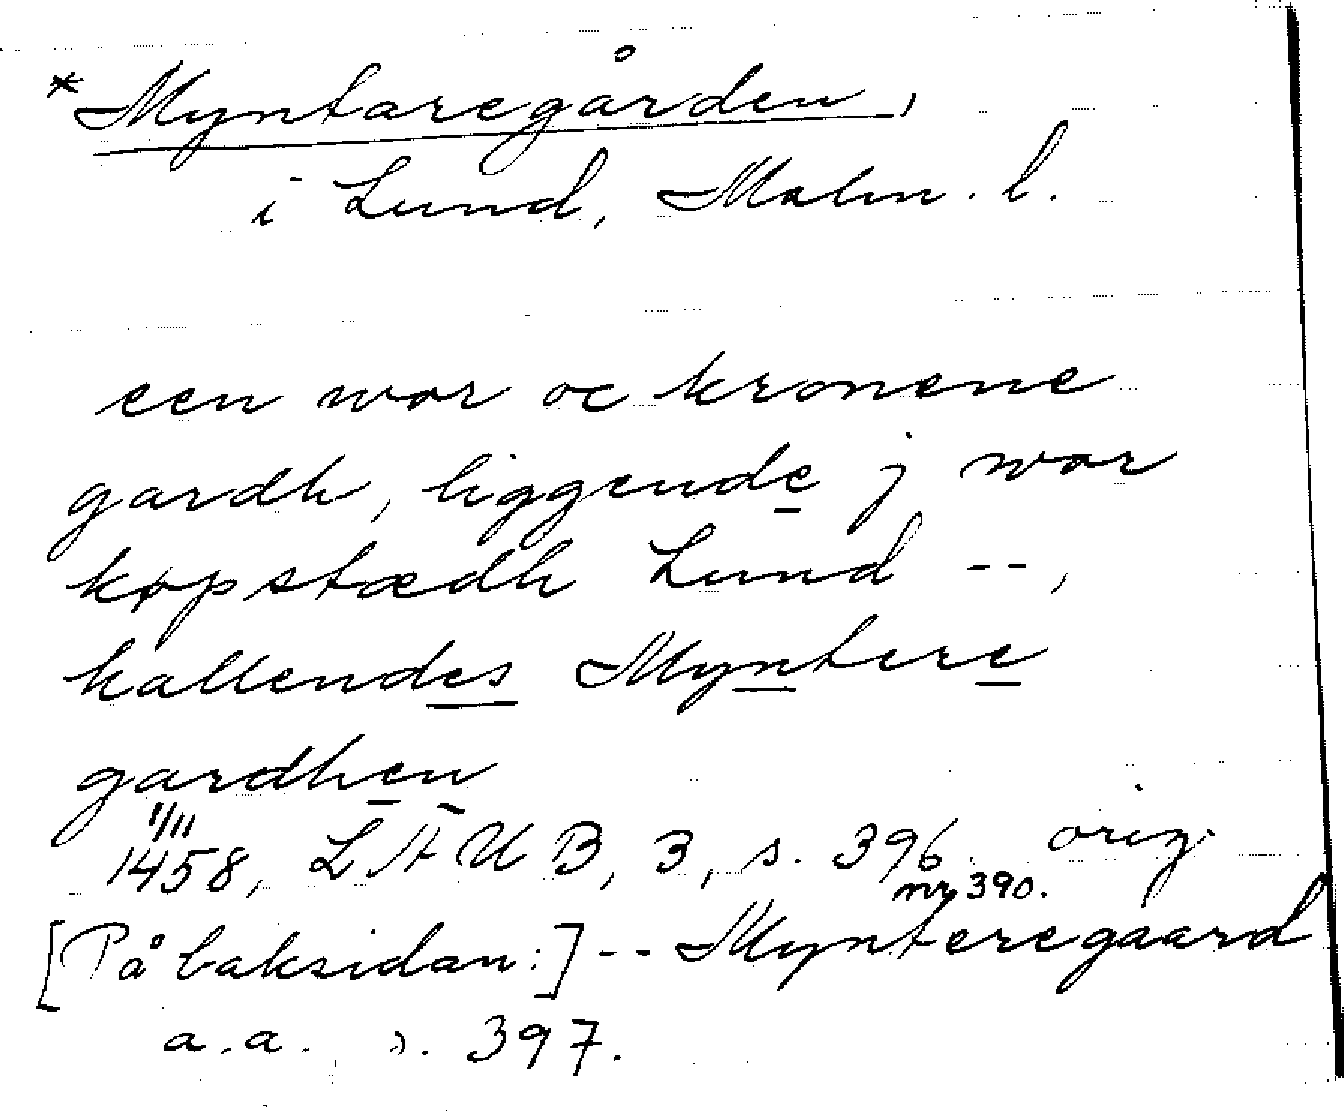 *Myntaregården,
i Lund, Malm. l.
een wor oc kronene
gardh, liggende j wor
køpstædh Lund --,
kallendes Myntere
gardhen
1/11
1458, LÄUB, 3, s. 396. orig.
nr 390.
[På baksidan:] -- Mynteregaard
a.a. s. 397.